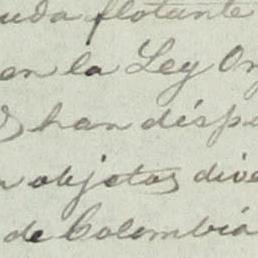 uda flotante
en la Ley Or
han dispe
objetos dive
de Colombia